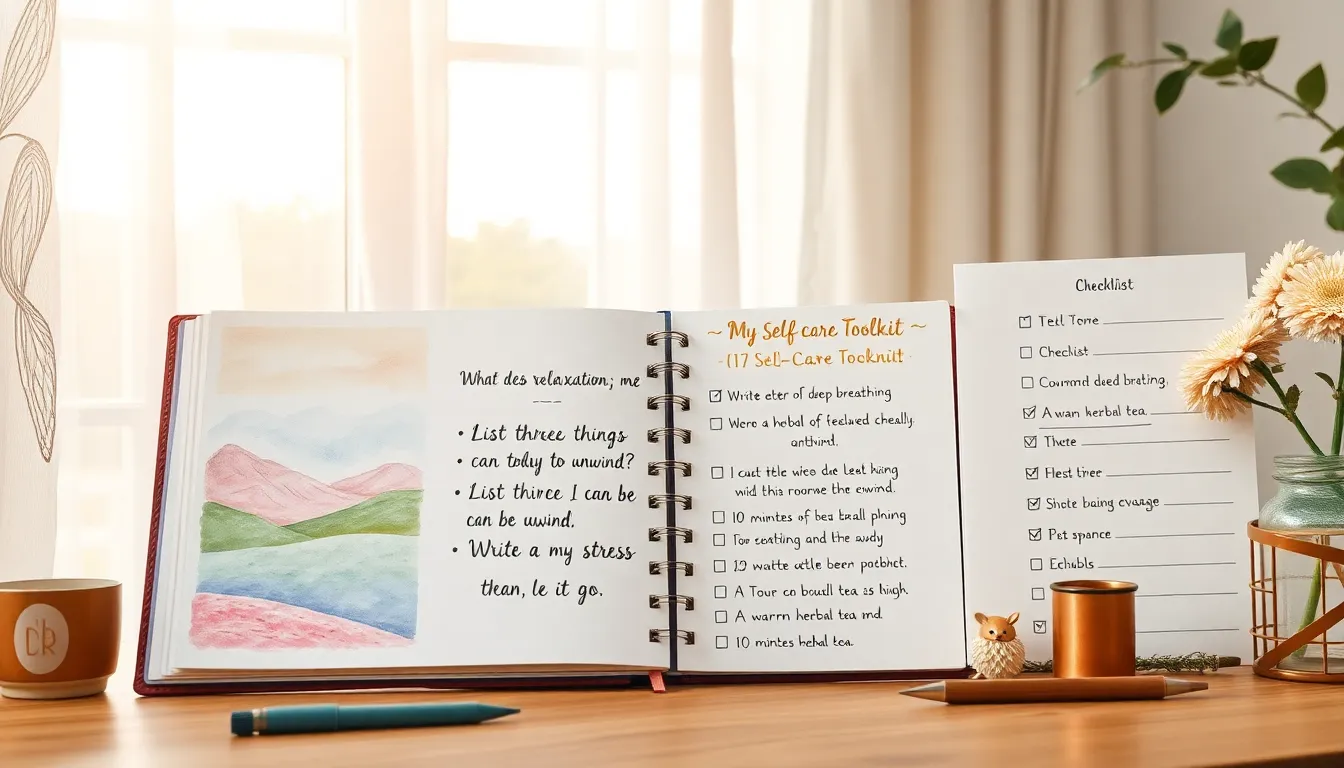 What des relaxation; me
• List three things
• can tolly to unwind?
• List thirce I can be
can be uwind.
• Write a my stress
then, le it go.
~ My Self care Toolkit ~
(17 Self-Care Tocknlit
Write eter of deep breathing
Were a hebal of feelaved cheally
anthivd.
I cast itle wico de lest hiing
wid this roorve the ewind.
10 mintes of bea tzall plning
Toe eexthing and the audy
12 watte actle been potbict.
A Tour co boull tea as high.
A warrn herbal tea md.
10 mintes hebal tea.
Checklist
Tetl Torre
Checklist
Courmd deed brating.
A wan herbal tea.
There
Flest tree
Shote baing evarge
Pet spance
Echubls